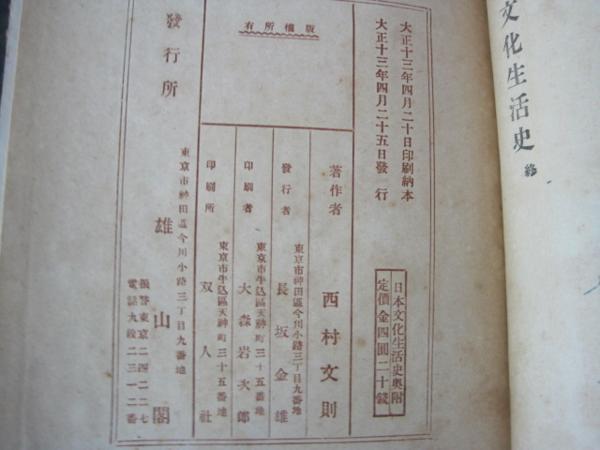 文化生活史 終
大正十三年四月二十日印刷納本
大正十三年四月二十五日發行
日本文化生活史奧附
定價金四圓二十錢
著作者 西村文則
東京市神田區今川小路三丁目九番地
發行者 長坂金雄
東京市牛込區天神町三十五番地
印刷者 大森岩次郎
東京市牛込區天神町三十五番地
印刷所 双人社
版權所有
東京市神田區今川小路三丁目九番地
發行所 雄山閣
振替東京二四二二七
電話九段二三一二番